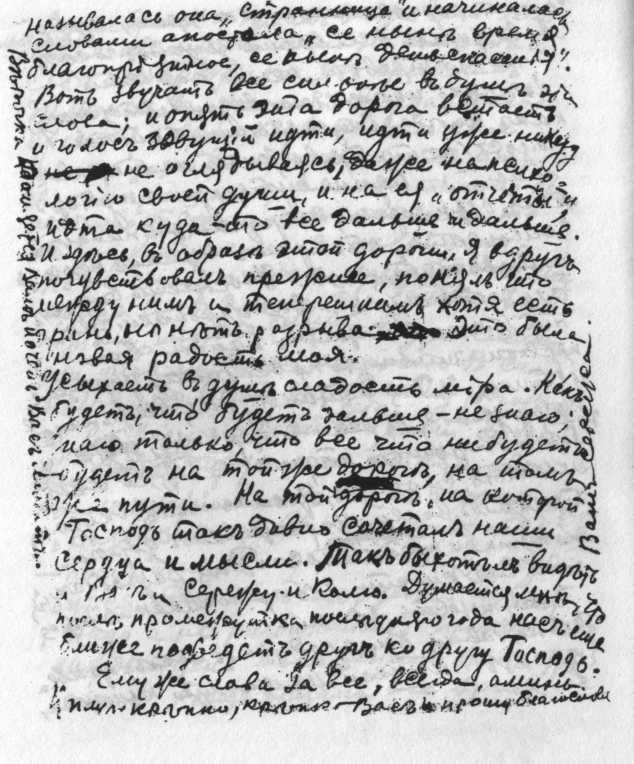 называлась она „странница“ и начиналась
словами апостола „се нынѣ время
благопріятное, се нынѣ день спасенія“.
Вотъ звучатъ все сильнѣе въ душѣ эти
слова; и опять эта дорога встаетъ
и голосъ зовущій идти, идти уже никуда
не не оглядываясь, даже на психо-
логію своей души, и на ея „отчеты“, и
идти куда-то все дальше и дальше.
И здѣсь, въ образѣ этой дороги, я вдругъ
почувствовалъ прежнее, понялъ что
между нимъ и теперешнимъ хотя есть
грань, но нѣтъ разрыва. Это была
новая радость моя.
Усыхаетъ въ душѣ сладость міра. Какъ
будетъ, что будетъ дальше – не знаю;
знаю только, что все что ни будетъ
будетъ на той же дорогѣ, на томъ
же пути. На той дорогѣ, на которой
Господь такъ давно сочеталъ наши
сердца и мысли. Такъ бы хотѣлъ видѣть
и Сережу и Колю. Думается мнѣ, что
послѣ промежутка послѣдняго года насъ еще
ближе подведетъ другъ ко другу Господь.
Ему же слава за все, всегда, аминь.
крѣпко, крѣпко Васъ и прошу благослов
Вашъ Сережа.